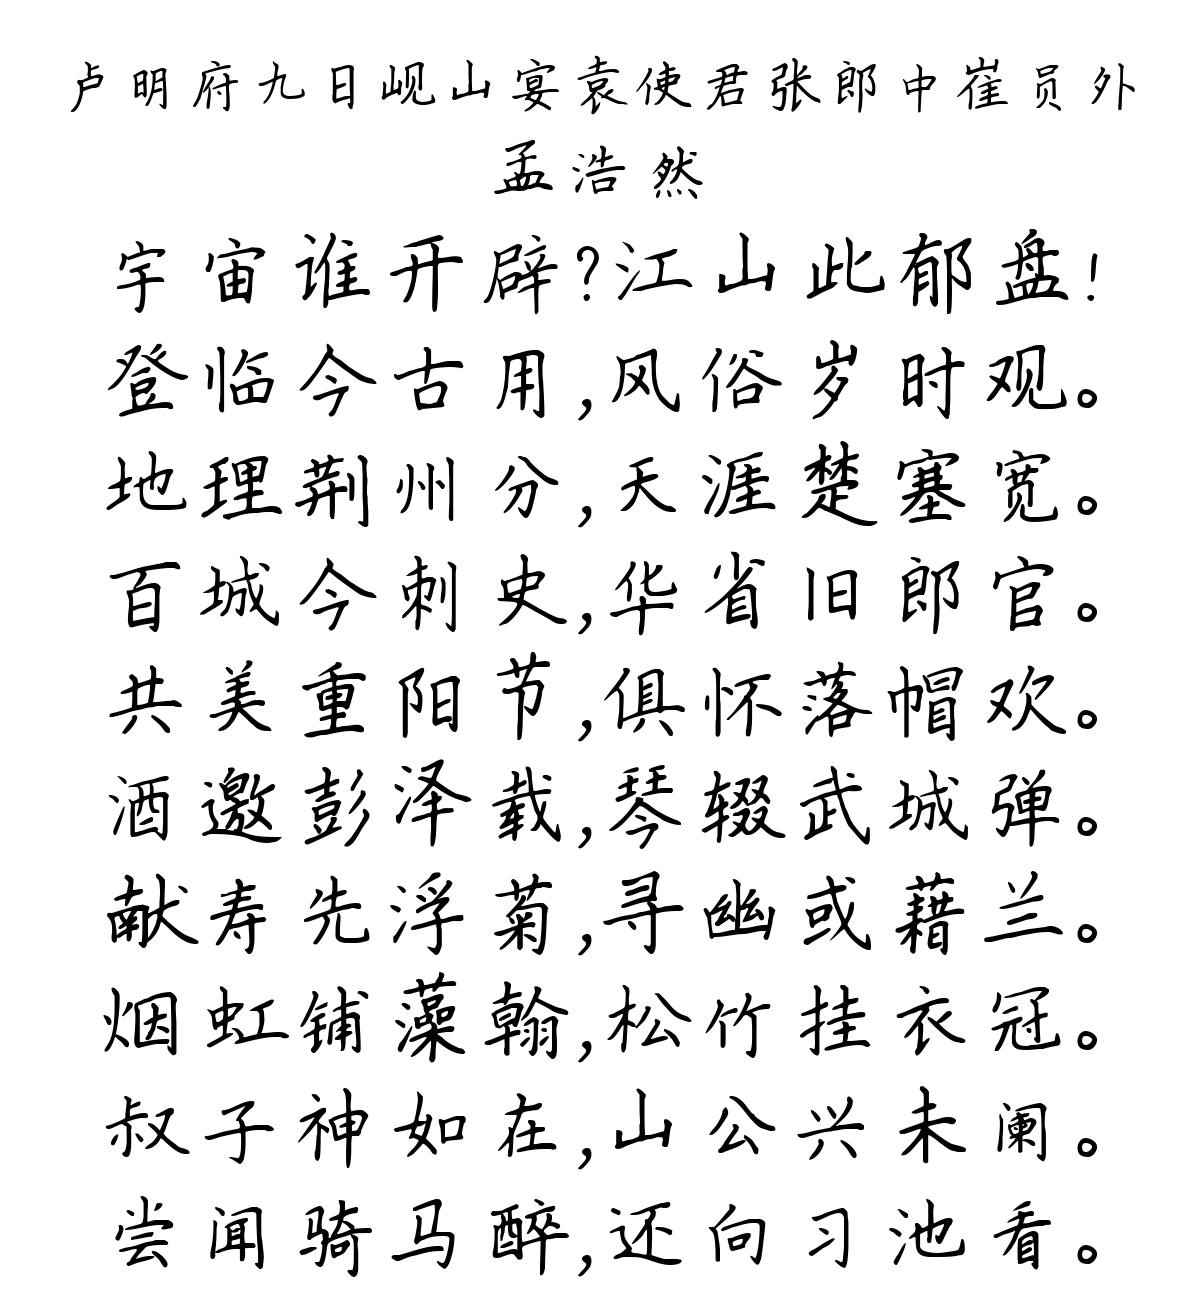 卢明府九日岘山宴袁使君张郎中崔员外
孟浩然
宇宙谁开辟?江山此郁盘!
登临今古用,风俗岁时观。
地理荆州分,天涯楚塞宽。
百城今刺史,华省旧郎官。
共美重阳节,俱怀落帽欢。
酒邀彭泽载,琴辍武城弹。
献寿先浮菊,寻幽或藉兰。
烟虹铺藻翰,松竹挂衣冠。
叔子神如在,山公兴未阑。
尝闻骑马醉,还向习池看。